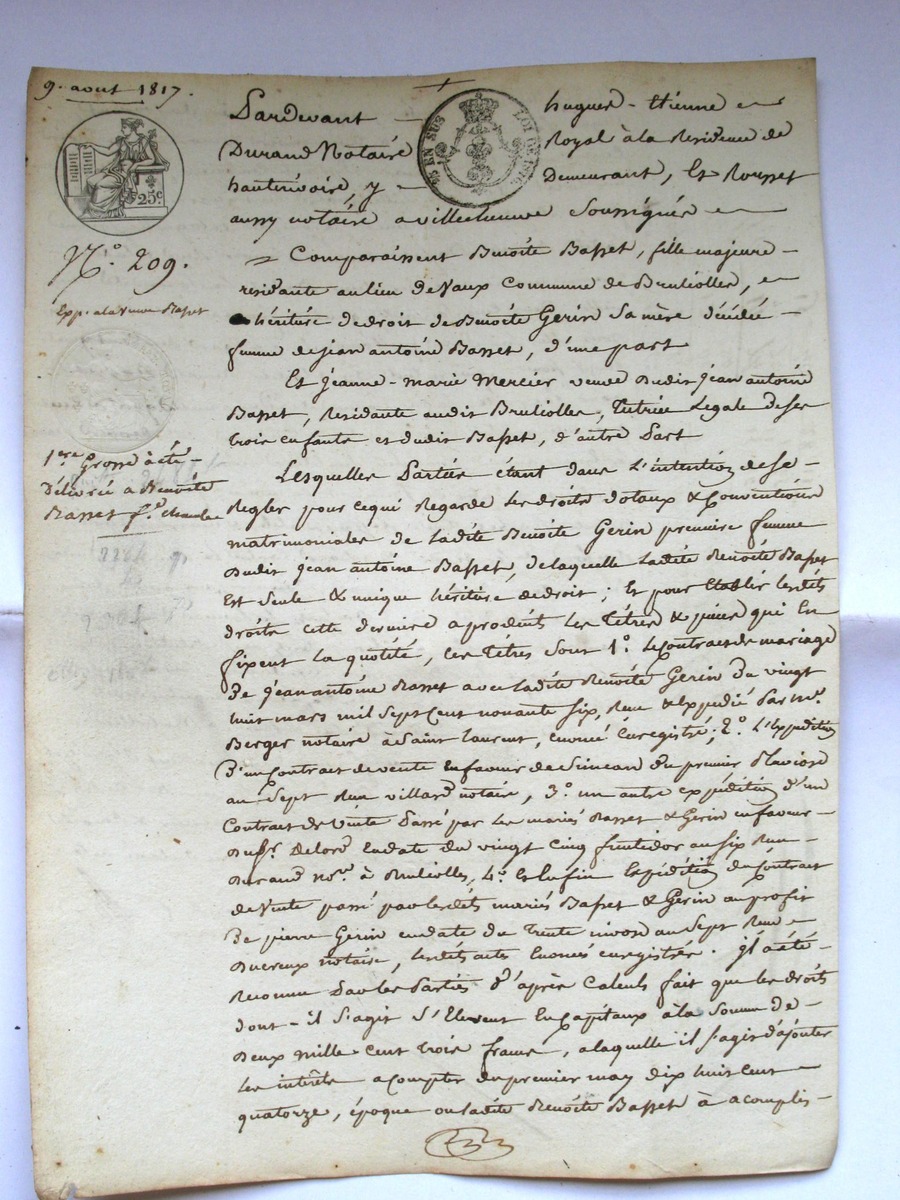 9. aout 1817.
Pardevant hugues-Etienne
Durand Notaire Royal à la Residence de
hauterivoire, y Demeurant, Et Rousset
aussy notaire a villecheneuve Soussignés
25c
EN SUS
N.° 209.
Comparaissent Benoîte Basset, fille majeure
residante au lieu De Vaux Commune de Brulliolles,
héritière de droit de Benoîte Gerin Sa mère décédée
Exp. a la veuve Basset
femme de jean antoine Basset, d'une part
Et jeanne-marie Mercier veuve Dudit jean antoine
Basset, Residante audit Brulliolles, Tutrice Legale de ses
trois enfants et dudit Basset, d'autre Part
1ere Grosse à été
Délivrée a Benoîte
Basset
Lesquelles Parties étant dans L'intention de Se
Regler pour ce qui Regarde les droits dotaux & Conventions
matrimoniales de Ladite Benoîte Gerin premiere femme
Dudit jean antoine Basset, de laquelle Ladite Benoîte Basset
Est Seule & unique héritière de droit ; Et pour Etablir lesdits
droits cette derniere a produits les Titres & pièces qui En
fixent La quotité, ces Titres Sont 1.° le Contrat de mariage
De jean antoine Basset avec Ladite Benoîte Gerin Du vingt
huit mars mil Sept Cent nonante Six, Reçu & Expedié Par Mr.
Berger notaire à Saint Laurent, enoncé Enregistré ; 2.° L'Expedition
D'un Contrat de vente En faveur de Simean Du premier Pluviose
an Sept Reçu villard notaire, 3.° un autre expédition d'un
Contrat de Vente Passé par Les mariés Basset & Gerin en faveur
Delord En date du vingt Cinq fructidor an Six Reçu
Durand nore. à Brulliolles, 4.° Et Enfin Expédition du Contrat
de Vente passé par lesdits mariés Basset & Gerin au profit
De pierre Gerin en date du Trente nivose an Sept Reçu
Ducreux notaire, lesdits actes Enoncés enregistrés. Il a été
Reconnu Par les Parties d'après Calculs fait que les droits
dont-il S'agit S'Elevent En Capitaux à la Somme de
Deux mille Cent Trois francs, a laquelle il S'agit d'ajouter
les intérêts a Compter du premier may Dix huit Cent
quatorze, époque ou Ladite Benoîte Basset à accomplis